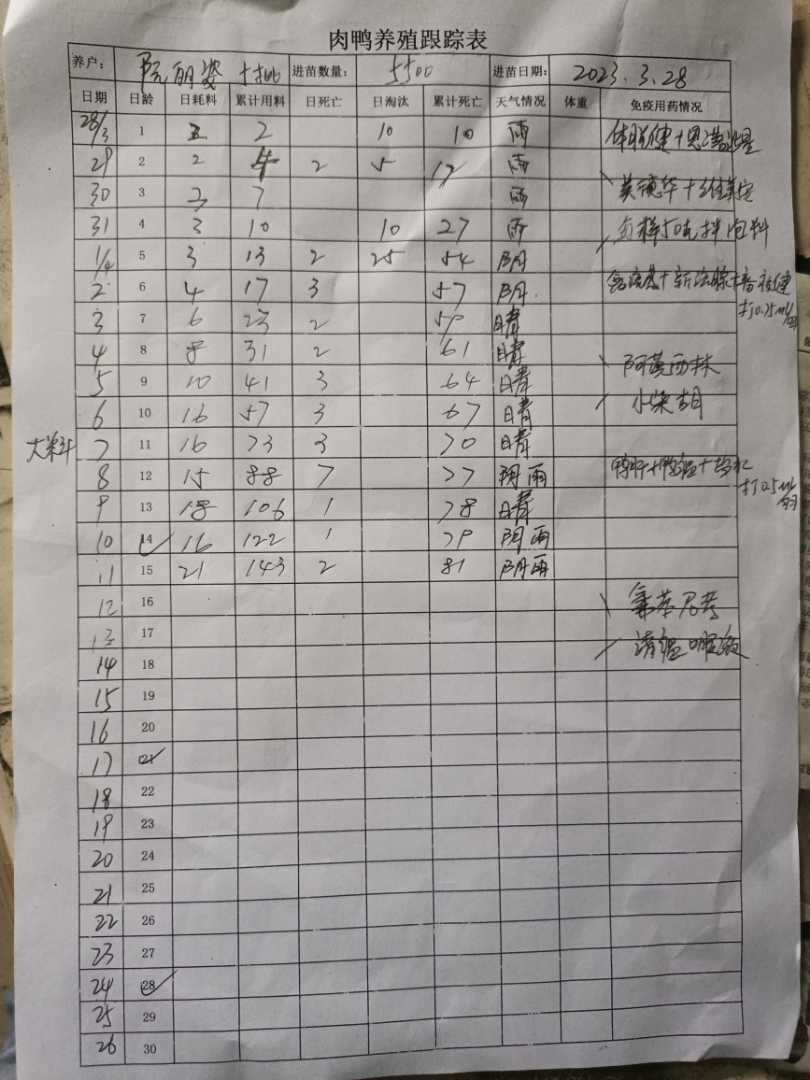 肉鸭养殖跟踪表
养户: 阮丽姿 进苗数量: 5500 进苗日期: 2023.3.28
日期 日龄 日耗料 累计用料 日死亡 日淘汰 累计死亡 天气情况 体重 免疫用药情况
28/3 1 2 10 10 雨
29 2 2 4 2 5 17 雨
30 3 3 7 雨
31 4 3 10 10 27 雨
1/4 5 3 13 2 25 54 阴
2 6 4 17 3 57 阴
打0.25ml/
3 7 6 23 2 59 晴
4 8 8 31 2 61 晴 阿莫西林
5 9 10 41 3 64 晴
6 10 16 57 3 67 晴 小柴胡
7 11 16 73 3 70 晴
8 12 15 88 7 77 阴雨
打0.5ml/
9 13 18 106 1 78 晴
10 14 16 122 1 79 阴雨
11 15 21 143 2 81 阴雨
12 16 氟苯尼考
13 17 清瘟
14 18
15 19
16 20
17 21
18 22
19 23
20 24
21 25
22 26
23 27
24 28
25 29
26 30